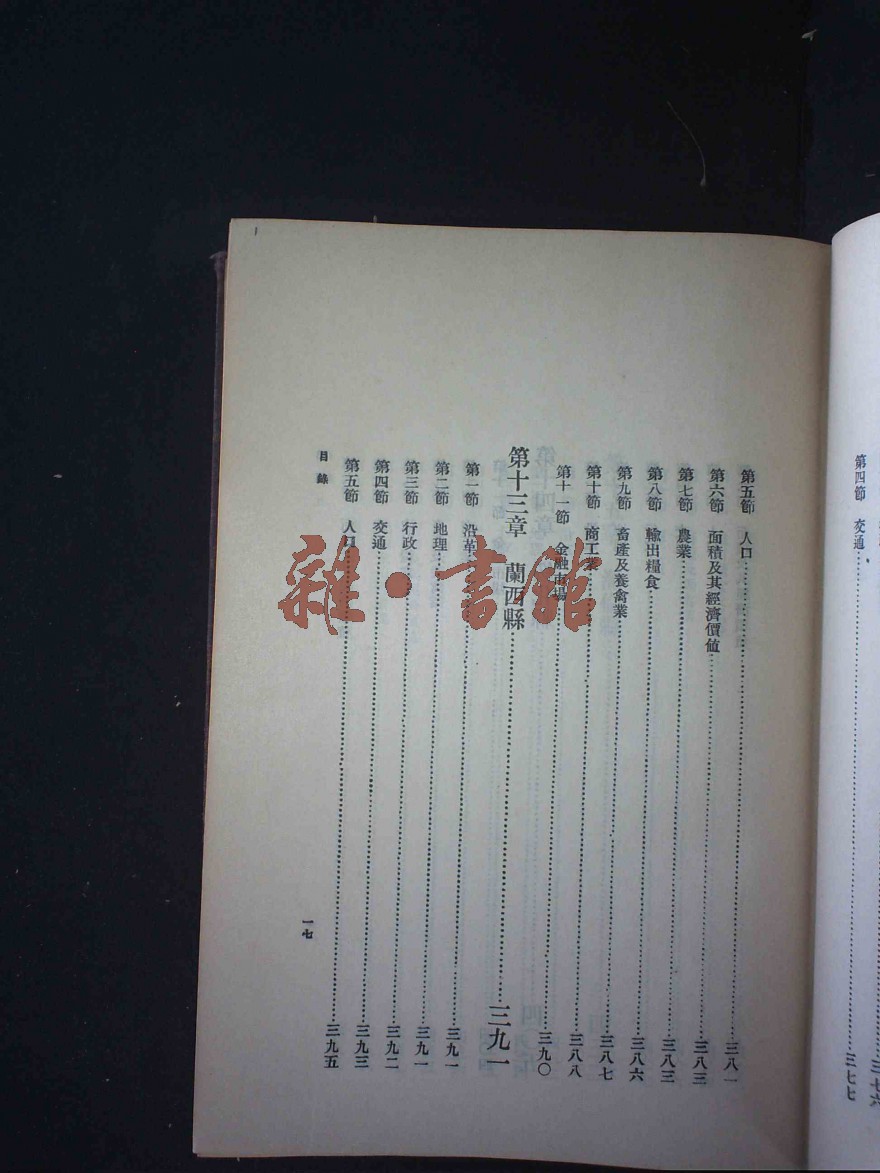 第四節 交通……三七七
第五節 人口……三八一
第六節 面積及其經濟價値……三八三
第七節 農業……三八三
第八節 輸出糧食……三八六
第九節 畜產及養禽業……三八七
第十節 商工業……三八八
第十一節 金融市場……三九〇
第十三章 蘭西縣……三九一
第一節 沿革……三九一
第二節 地理……三九一
第三節 行政……三九二
第四節 交通……三九三
第五節 人口……三九五
目錄
一七
雜·書館